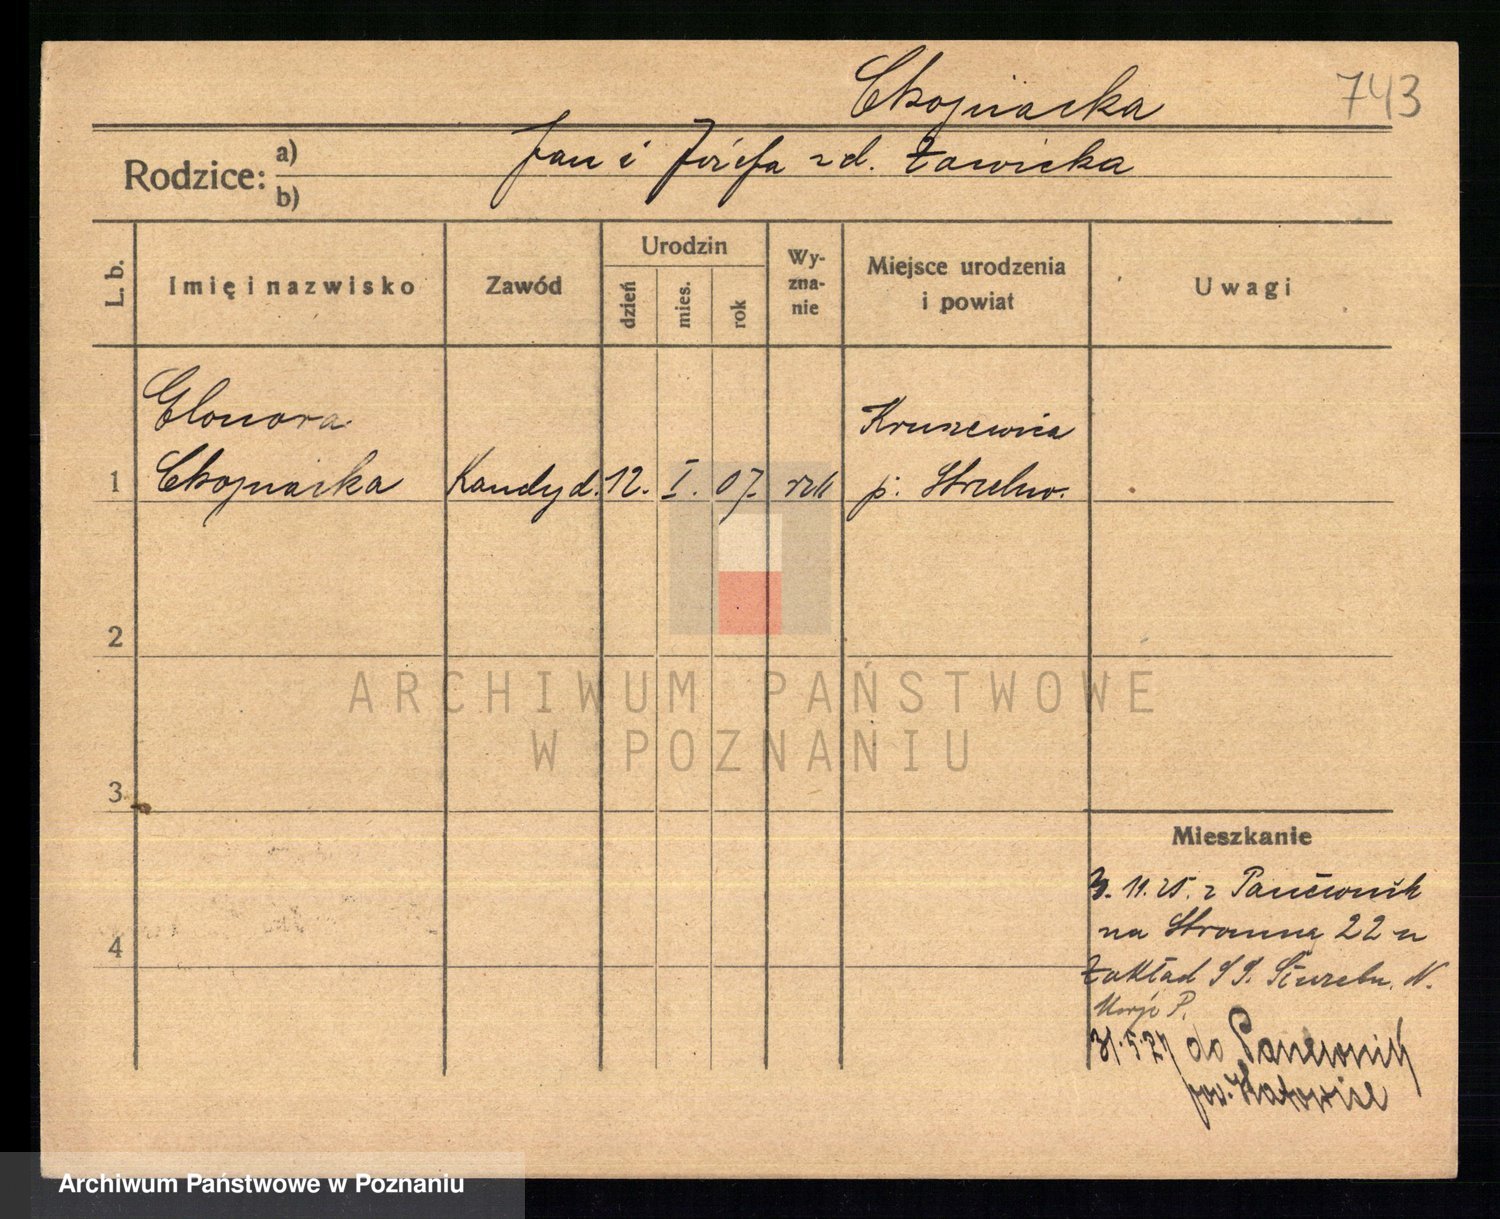 Chojnacka
743
Rodzice: a) b)
Jan i Józefa zd. Zawicka
L. b.
Imię i nazwisko
Zawód
Urodzin
dzień
mies.
rok
Wy-
zna-
nie
Miejsce urodzenia
i powiat
Uwagi
Elonora
Kruszwica
1 Chojnacka Kandyd. 12. I. 07. rzk p. Strzelno.
2
3
4
Mieszkanie
3. 11. 25. z Panewnik
na Stromną 22 u
Zakład S S. N.
Marji P.
31.5.27 do Panewnik
pow. Katowice
ARCHIWUM PAŃSTWOWE
W POZNANIU
Archiwum Państwowe w Poznaniu